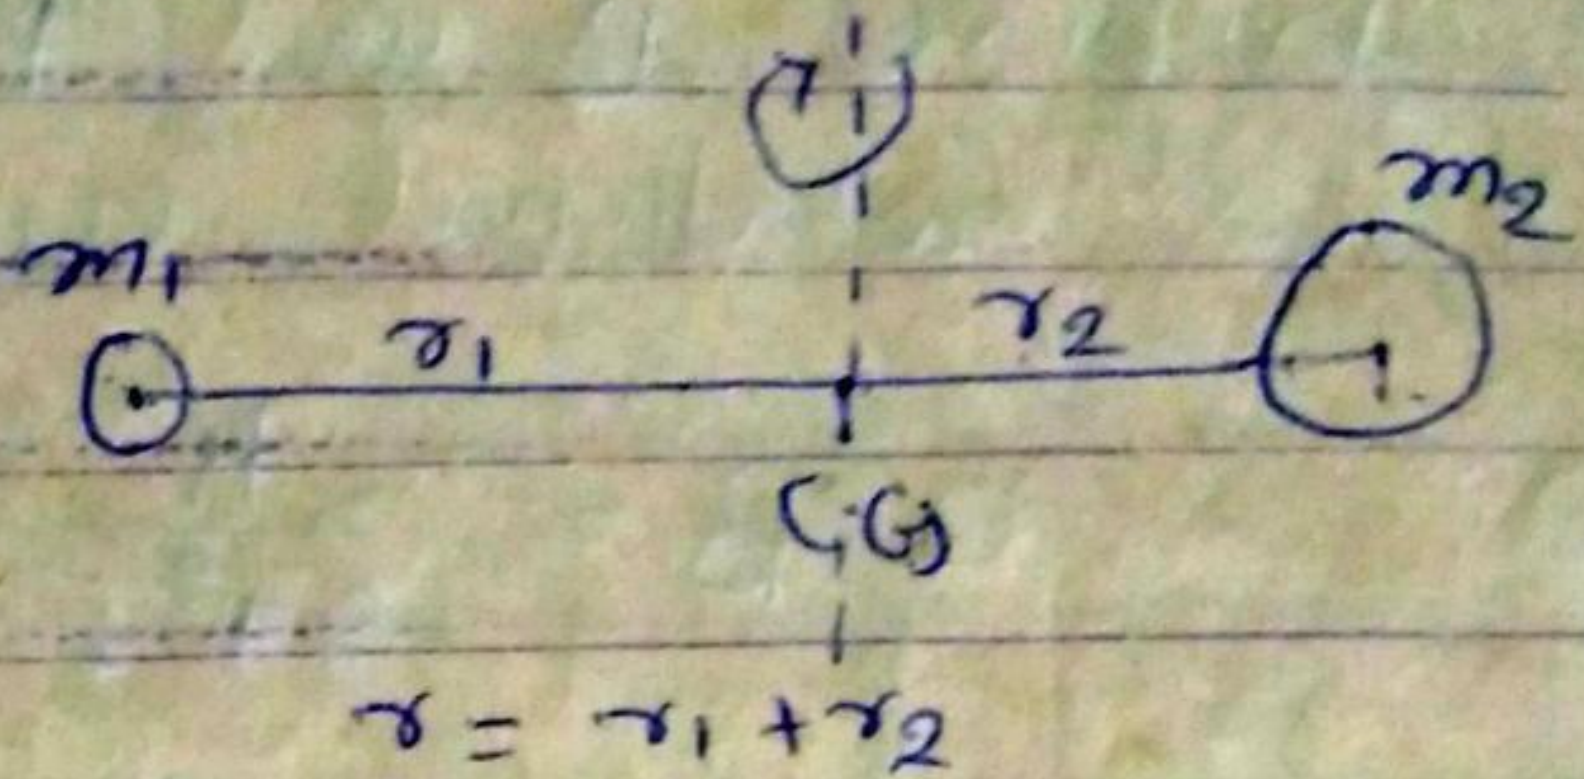 m₂
m₁
r₁ r₂
C.G
r = r₁ + r₂